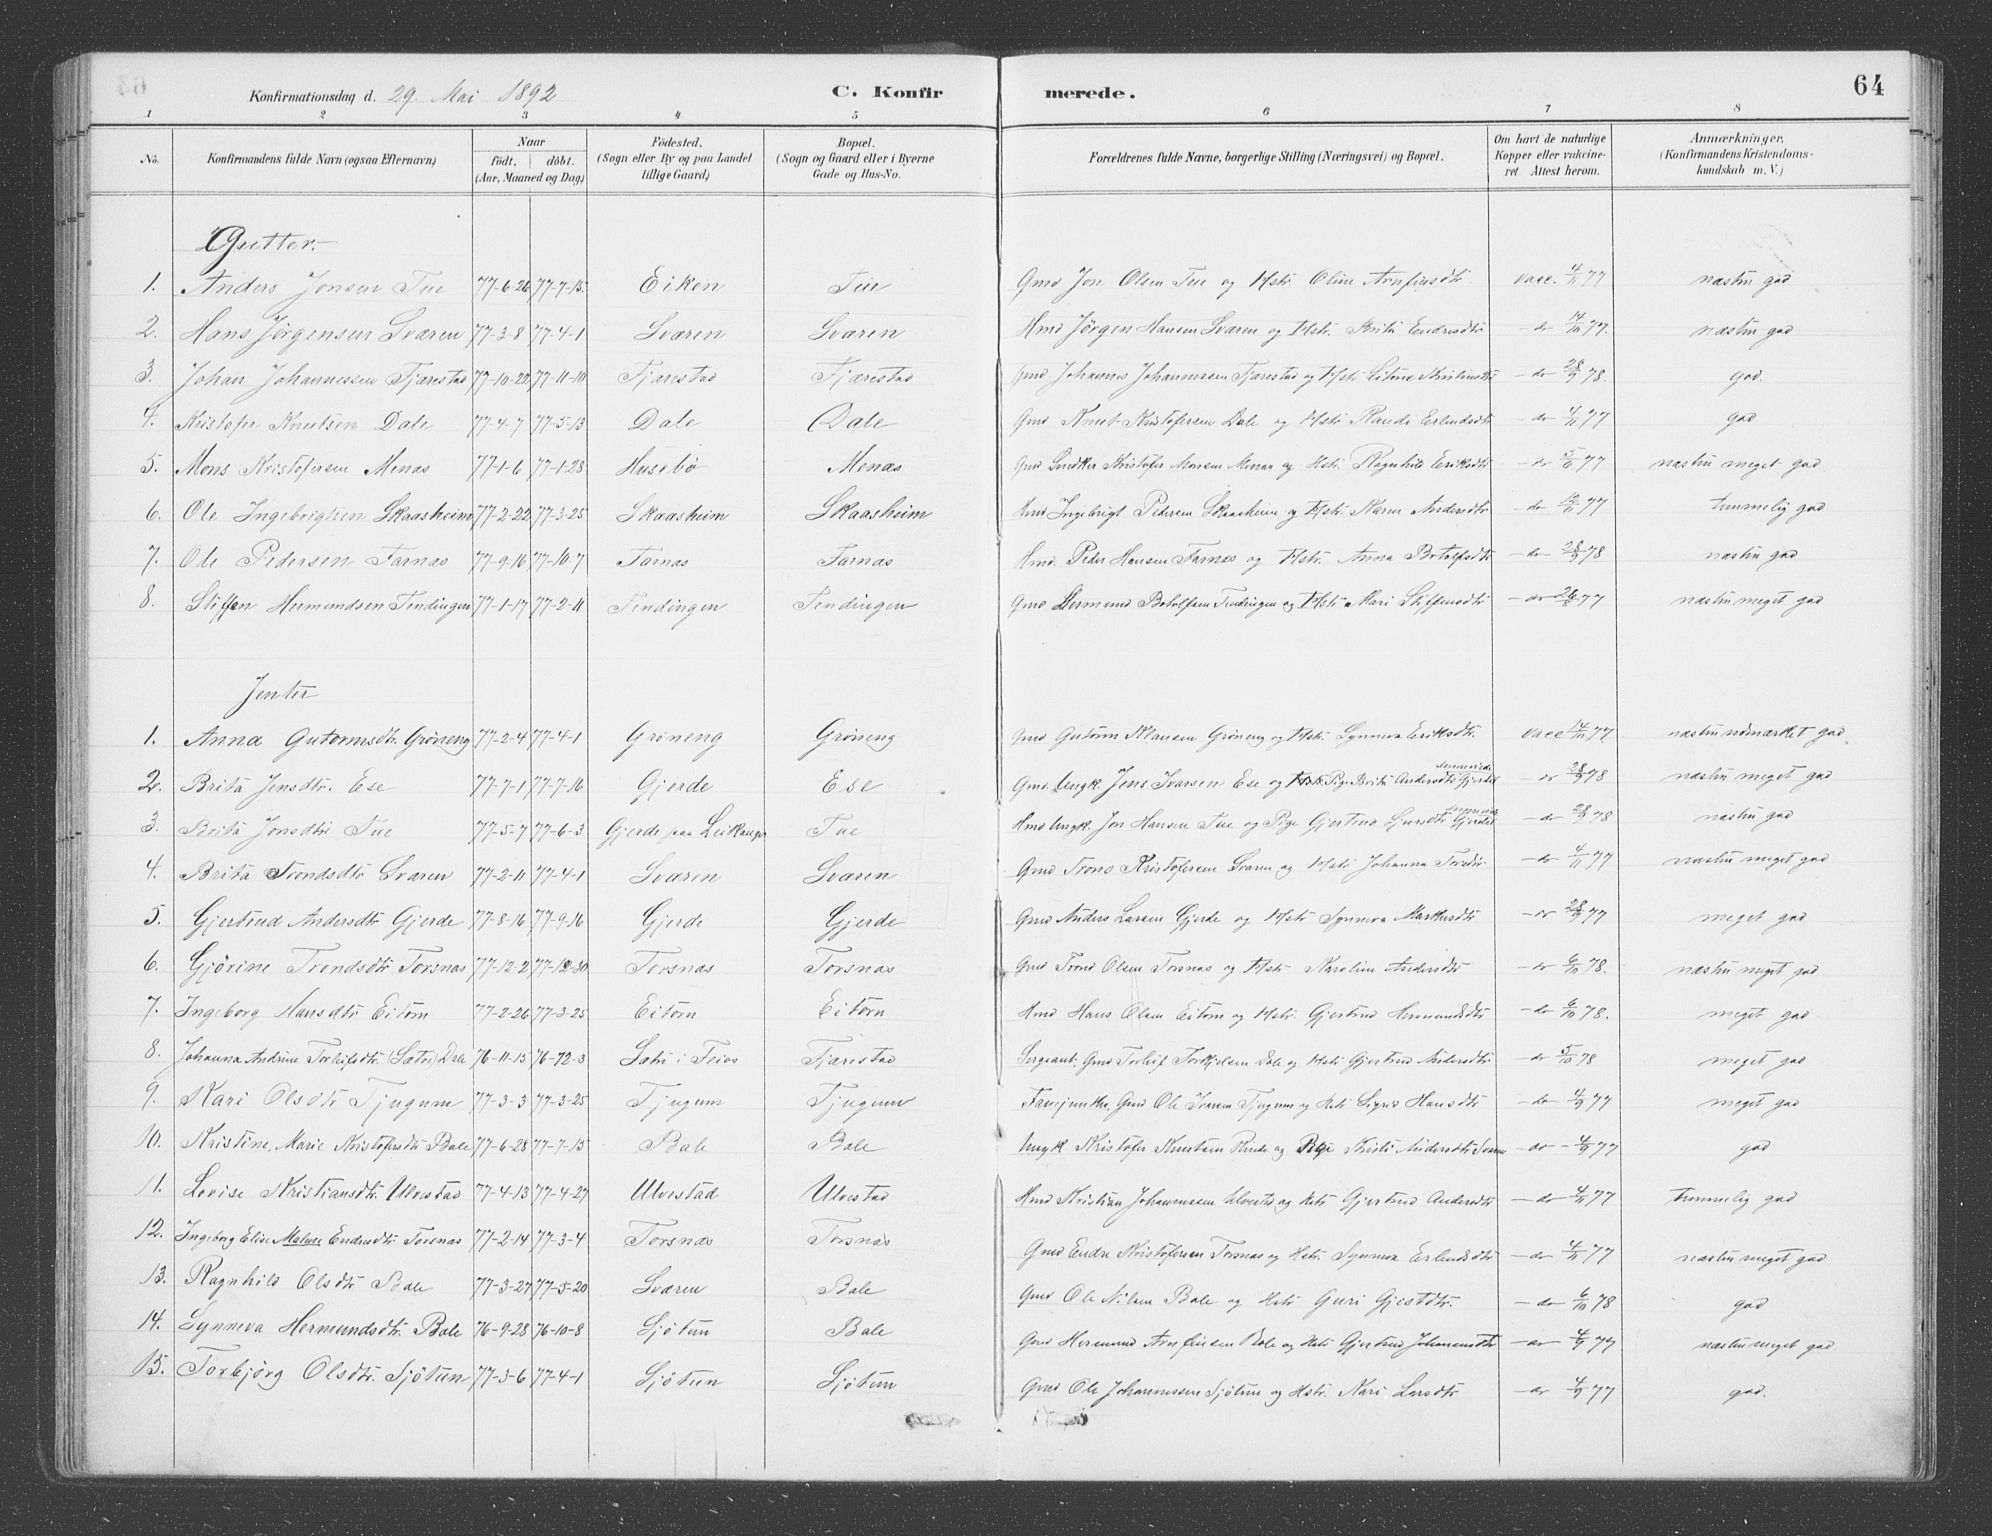 Konfirmationsdag d. 29. Mai 1892 C. Konfirmerede. 64
1 2 3 4 5 6 7 8
No. Konfirmandens fulde Navn (ogsaa Efternavn) Naar født. døbt. (Aar, Maaned og Dag) Fødested. (Sogn eller By og paa Landet tillige Gaard) Bopæl. (Sogn og Gaard eller i Byerne Gade og Hus-No. Forældrenes fulde Navne, borgerlige Stilling (Næringsvei) og Bopæl. Om havt de naturlige Kopper eller vakcineret Attest herom. Anmærkninger. (Konfirmandens Kristendomskundskab m. V.)
Gutter.
1. Anders Jonsen Tue 77-6-26 77-7-15 Eiken Tue Gmd Jon Olsen Tue og Hstr Oline Arnfinsdtr vacc. 4/11 77 næstm god
2. Hans Jørgensen Sværen 77-3-8 77-4-1 Sværen Sværen Hmd Jørgen Hansen Sværen og Hstr. Brita Endresdtr - do 14/10 77. næstm god
3. Johan Johannessen Fjærestad 77-10-22 77-11-10 Fjærestad Fjærestad Gmd Johannes Johannessen Fjærestad og Hstr - do - 28/9 78. god.
4. Kristofer Knutsen Dale 77-4-7 77-5-13 Dale Dale Gmd Knut Kristofersen Dale og Hstr Randi Erlendsdtr - do - 4/11 77 god
5. Mons Kristofersen Menæs 77-1-6 77-1-28 Husebø Menæs Gmd Snedker Kristofer Monsen Menæs og Hstr. Ragnhild Eriksdtr - do 5/6 77 næstm meget god
6. Ole Ingebrigtsen Skaasheim 77-2-22 77-3-25 Skaasheim Skaasheim Hmd Ingebrigt Pedersen Skaasheim og Hstr. Karen Andersdtr - do 77 temmelig god
7. Ole Pedersen Farnæs 77-9-16 77-10-7 Farnæs Farnæs Hmd. Peder Hansen Farnæs og Hstr. Anna Botolfsdtr - do - 28/9 78 næstm god
8. Stiffen Hermundsen Fendingen 77-1-17 77-2-11 Fendingen Fendingen Gmd Hermund Botolfsen Fendingen og Hstr Mari Stiffensdtr - do 77 næstm meget god
Jenter
1. Anna Gutormsdtr. Grøneng 77-2-4 77-4-1 Grøneng Grøneng Gmd Gutorm Klausen Grøneng og Hstr. Synneva Eriksdtr. vacc 14/11 77 næstm udmærket god
2. Brita Jensdtr. Ese 77-7-1 77-7-16 Gjerde Ese Gmd. Ungk. Jens Ivarsen Ese og Pige Brita Andersdtr Gjerde - do 28/9 78 næstm meget god
3. Brita Jonsdtr Tue 77-5-7 77-6-3 Gjerde paa Leikanger Tue Hmd Ungk. Jon Hansen Tue og Pige Gjertrud Gjerde - do 28/9 78 næstm god
4. Brita Trondsdtr Sværen 77-2-11 77-4-1 Sværen Sværen Gmd Trond Kristofersen Sværen og Hstr Johanna - do - 4/11 77 næstm meget god
5. Gjertrud Andersdtr Gjerde 77-8-16 77-9-16 Gjerde Gjerde Gmd Anders Larsen Gjerde og Hstr Synneva - do 28/9 77 meget god
6. Gjørine Trondsdtr Torsnæs 77-12-2 77-12-30 Torsnæs Torsnæs Gmd Trond Olsen Torsnæs og Hstr. Karoline Andersdtr - do 6/10 78. næstm meget god
7. Ingeborg Hansdtr Eitorn 77-2-26 77-3-25 Eitorn Eitorn Hmd Hans Olsen Eitorn og Hstr. Gjertrud Hermundsdtr - do 6/10 78. meget god
8. Johanna Andrine Torleifsdtr (Sætre) Dale 76-11-15 76-12-3 Sætr i Feios Fjærestad Sergeant. Gmd Torleif Torkjelsen Dale og Hstr Gjertrud Andersdtr - do 5/10 78 meget god
9. Kari Olsdtr Tjugum 77-3-3 77-3-25 Tjugum Tjugum Fanejunker, Gmd Ole Ivarsen Tjugum og Hstr Sigrid Hansdtr - do - 4/9 77 meget god
10. Kristine, Marie Kristofersdtr Bale 77-6-28 77-7-15 Bale Bale Ungk Kristofer Knutsen Rinde og Pige Kristi Andersdtr Sværen - do - 4/9 77 god
11. Lovise Kristiansdtr. Ulvestad 77-4-13 77-4-27 Ulvestad Ulvestad Hmd Kristian Johannessen Ulvestad og Hstr Gjertrud Andersdtr - do 4/11 77 temmelig god
12. Ingeborg Elise Malene Endresdtr Torsnæs 77-2-14 77-3-4 Torsnæs Torsnæs Gmd Endre Kristofersen Torsnæs og Hstr. Synneva Erlendsdtr - do 4/11 77 næstm meget god
13. Ragnhild Olsdtr Bale 77-3-27 77-5-20 Sværen Bale Gmd Ole Nilsen Bale og Hstr Guri Gjestdtr. - do 6/10 78 god
14. Synneva Hermundsdtr. Bale 76-9-28 76-10-8 Sjøtun Bale Gmd Hermund Arnfinsen Bale og Hstr Gjertrud Johannesdtr - do 4/9 77 næstm meget god
15. Torbjørg Olsdtr. Sjøtun 77-3-6 77-4-1 Sjøtun Sjøtun Gmd Ole Johannessen Sjøtun og Hstr. Kari Larsdtr - do 4/9 77 god.